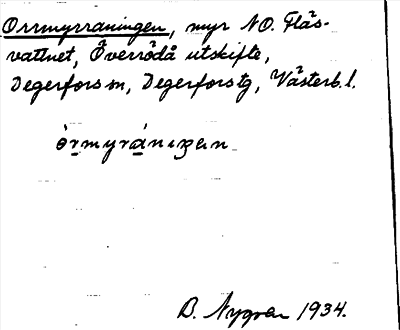 Orrmyrraningen, myr NO. Flås-
vattnet, Överrödå utskifte,
Degerfors sn, Degerfors tg, Västerb. l.
òrmyrániŋen
B. Nygren 1934.